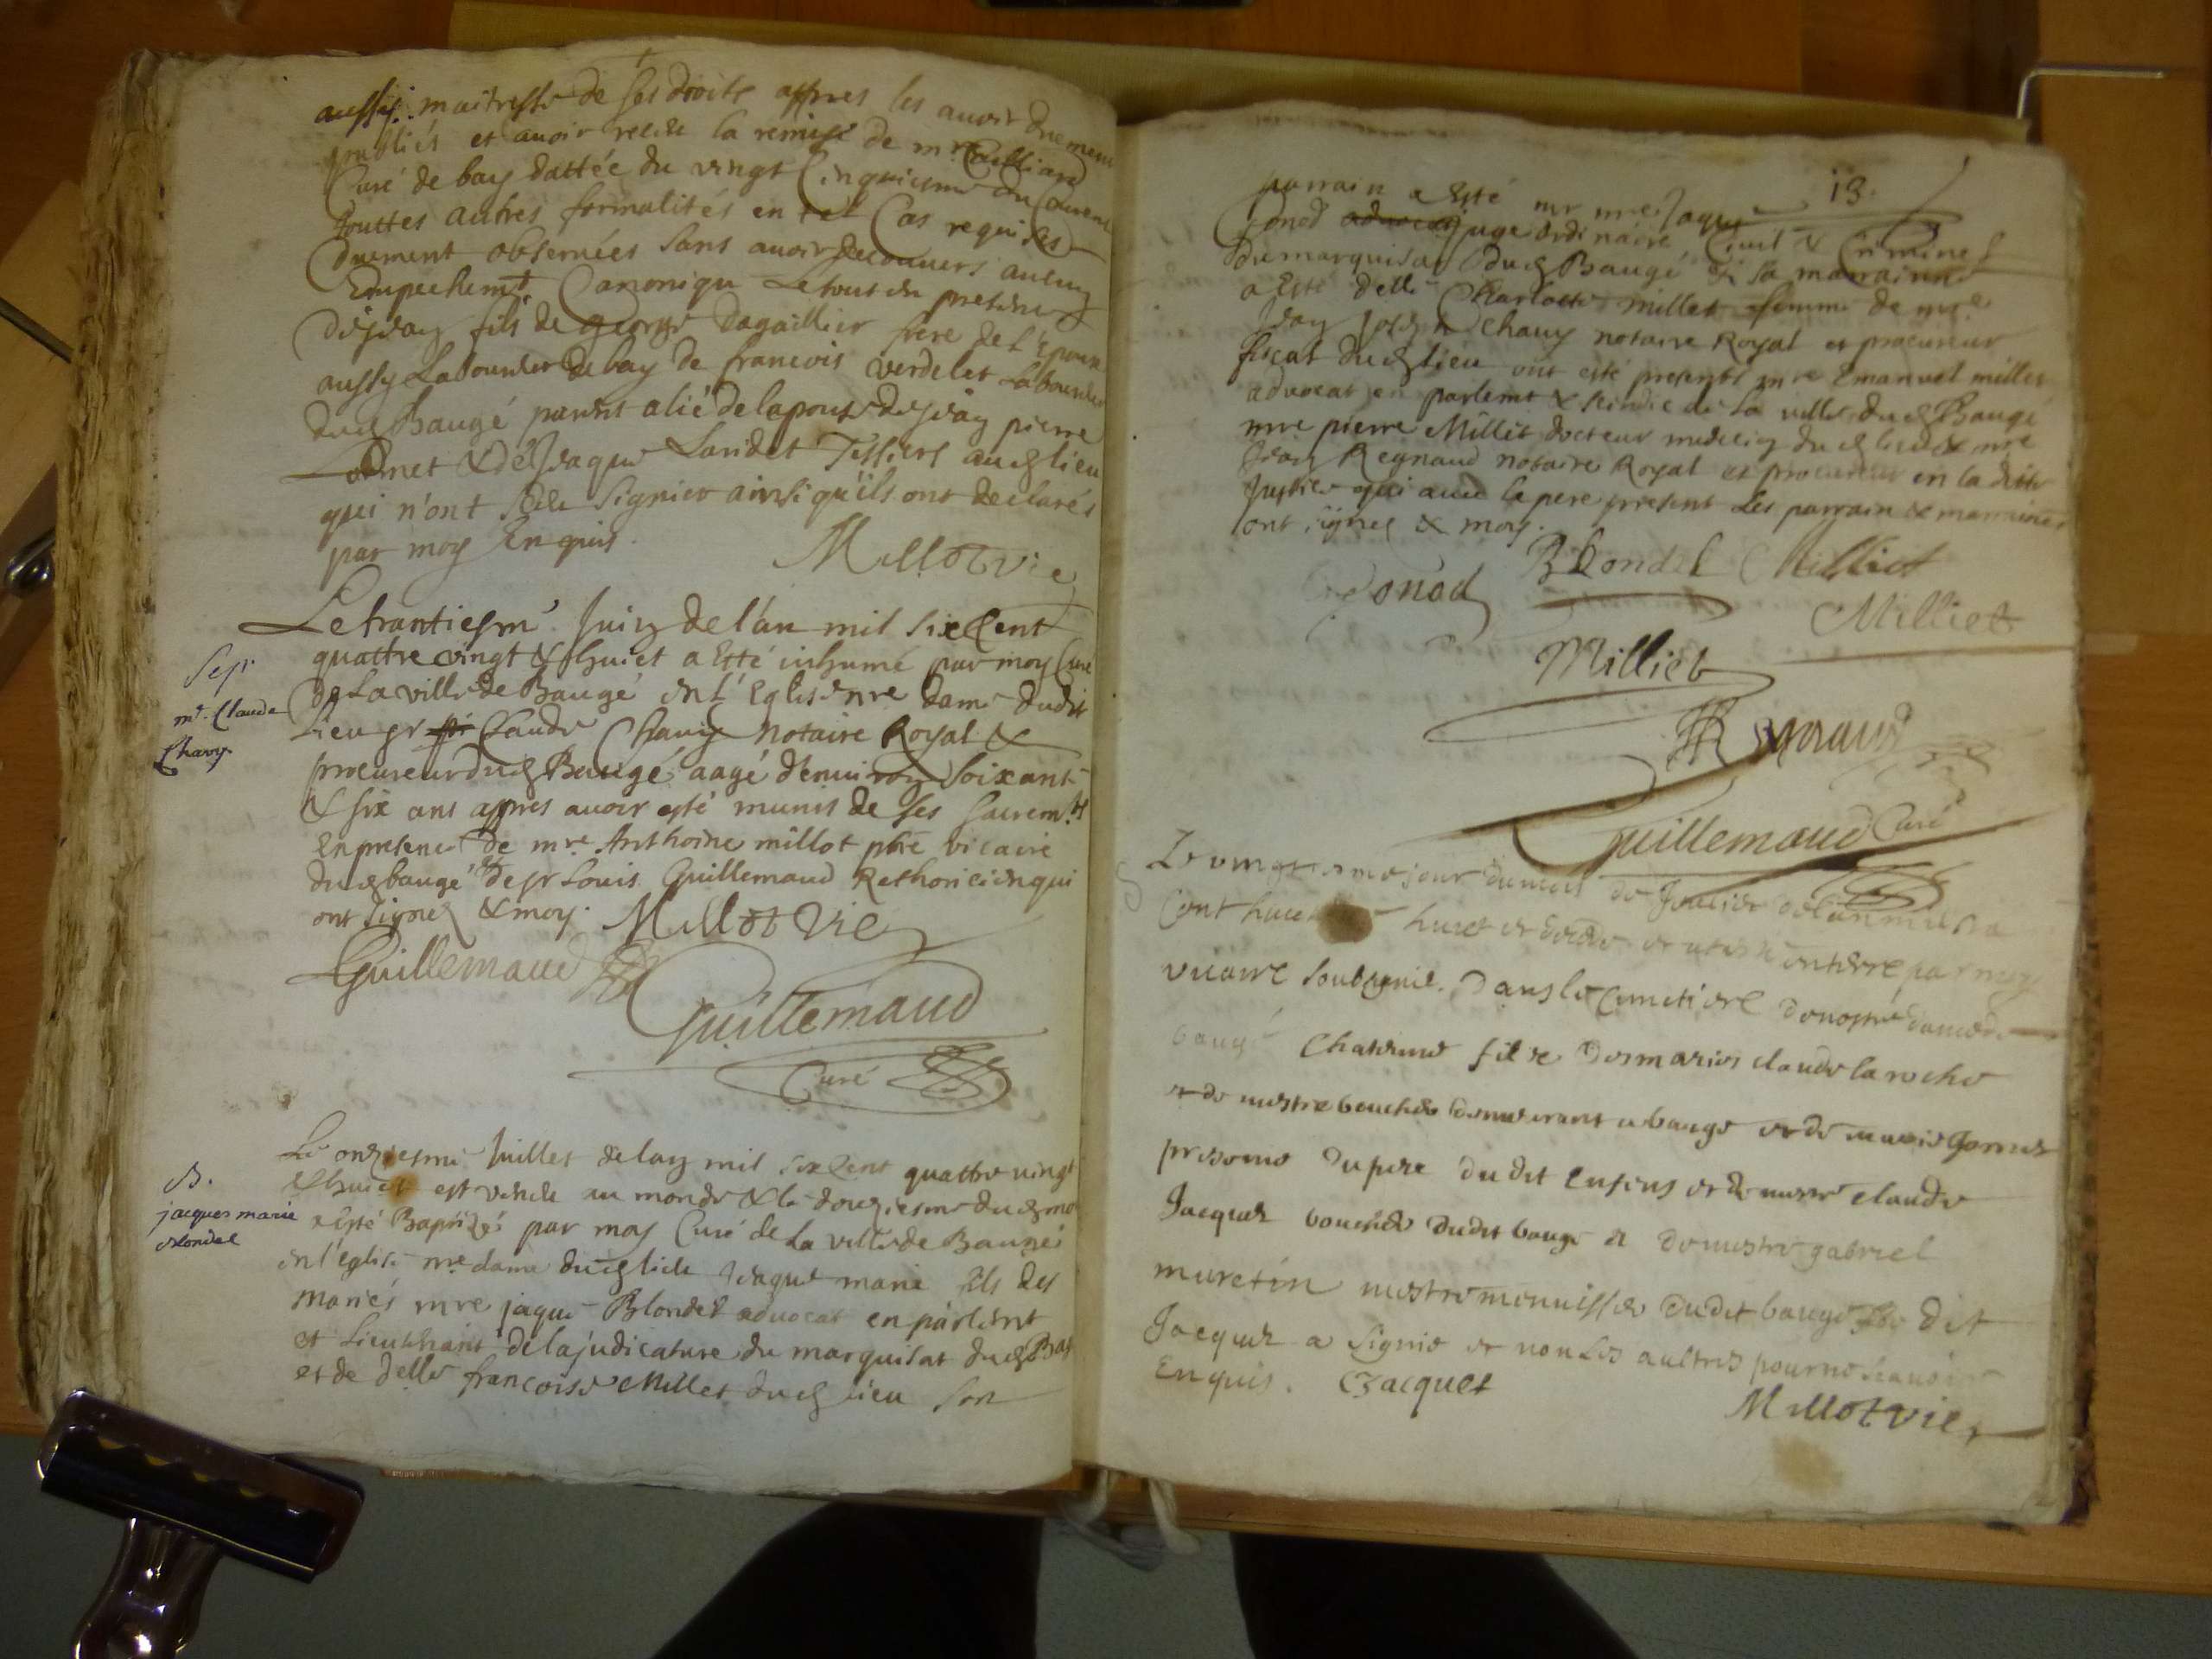 aussy maitresse de ses droits appres les avoir duement
publiés et avoir receu la remise de mre
Curé de bay dattée du vingt Cinquiesme du Courant
touttes autres formalités en tel Cas requises
duement observées sans avoir decouvers aucun
Empechemt Canonique le tout en presence
de jean fils de george dagaillier frere de l'Epouse
aussy Laboureur de bay de francois verdelet Laboureur
dud Baugé parent alié de lepouse de jean pierre
& de jaque Laridet Tissiers dud lieu
qui n'ont sceu signier ainsi qu'ils ont declarés
par moy Enquis.
Millot vic
Le trantiesme Juin de l'an mil six Cent
quattre vingt & huict a Esté inhumé par moy Curé
de La ville de Baugé en l'Eglise nre dame dudit
Lieu sr Claude Chavy notaire Royal &
procureur dud Baugé aagé denuiron soixante
& six ans appres avoir esté munis de ses sacremts
En presence de mre Anthoine millot pbre vicaire
dud baugé et de sr Louis Guillemaud Rethoricien qui
ont signez & moy. Millot Vic
Guillemaud
Guillemaud
Curé
Sep.
mr. Claude
Chavy.
Le onziesme Juillet de lan mil six Cent quattre vingt
& huict est venu au monde & le douziesme dud mo
a Esté Baptizé par moy Curé de La ville de Baugé
en l'eglise nre dame dud lieu Jaque marie fils des
mariés mre jaque Blondel advocat en parlemt
et Lieutenant de la judicature du marquisat dud Bau
et de delle francoise Millet dud lieu son
B.
jacques marie
blondel
13.
parrain a Esté mr mre Jaque
Gonod juge ordinaire Civil & Criminel
du marquisat dud Baugé & sa marraine
a Esté delle Charlotte millet femme de mre
Jean Joseph Chavy notaire Royal et procureur
fiscal dud lieu ont esté presents mre Emanuel millet
advocat en parlemt & scindic de la ville dud Baugé
mre pierre Millet docteur medecin dud lieu & mre
Jean Regnaud notaire Royal et procureur en la ditte
Justice qui avec le pere present Les parrain & marraine
ont signez & moy.
Gonod Blondel Milliet
Milliet Milliet
Regnaud
Guillemaud Curé
Le vingt jour du mois de
Cent huict huict et a esté enterré par moy
vicaire soubsigné. dans le Cimetiere de nostre dame de
baugé Chaterine fille des maries claude laroche
et de mestre boucher demeurant a bauge et de marie
presence du pere du dit Enfens et de mestre claude
Jacquet boucher dudit bauge et de mestre gabriel
muretin mestre menuissier dudit bauge le dit
Jacquet a signé et non les aultres pour ne scavoir
Enquis. CJacquet
Millot vic